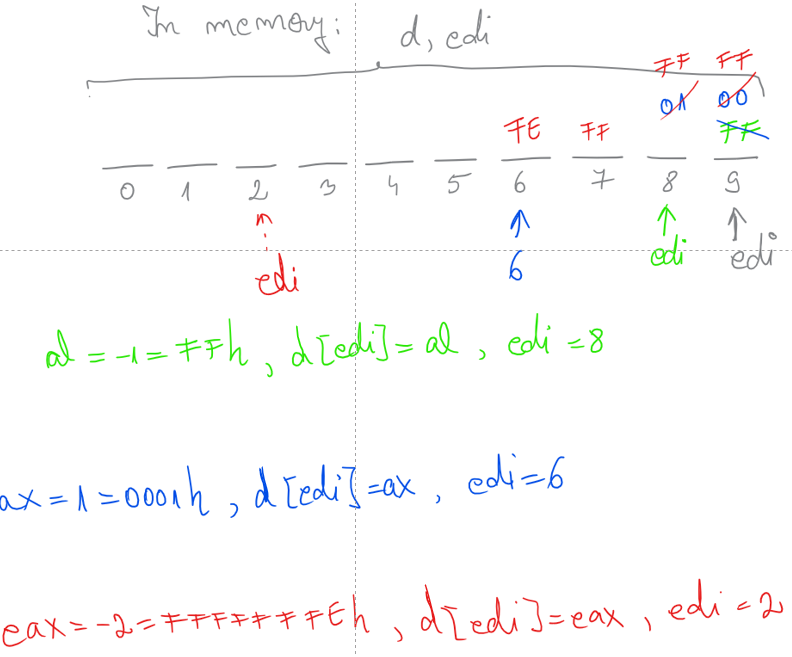 In memory: d, edi
FF FF
01 00
FE FF FF
0 1 2 3 4 5 6 7 8 9
edi 6 edi edi
al = -1 = FFh, d[edi] = al, edi = 8
ax = 1 = 0001h, d[edi] = ax, edi = 6
eax = -2 = FFFFFFFEh, d[edi] = eax, edi = 2